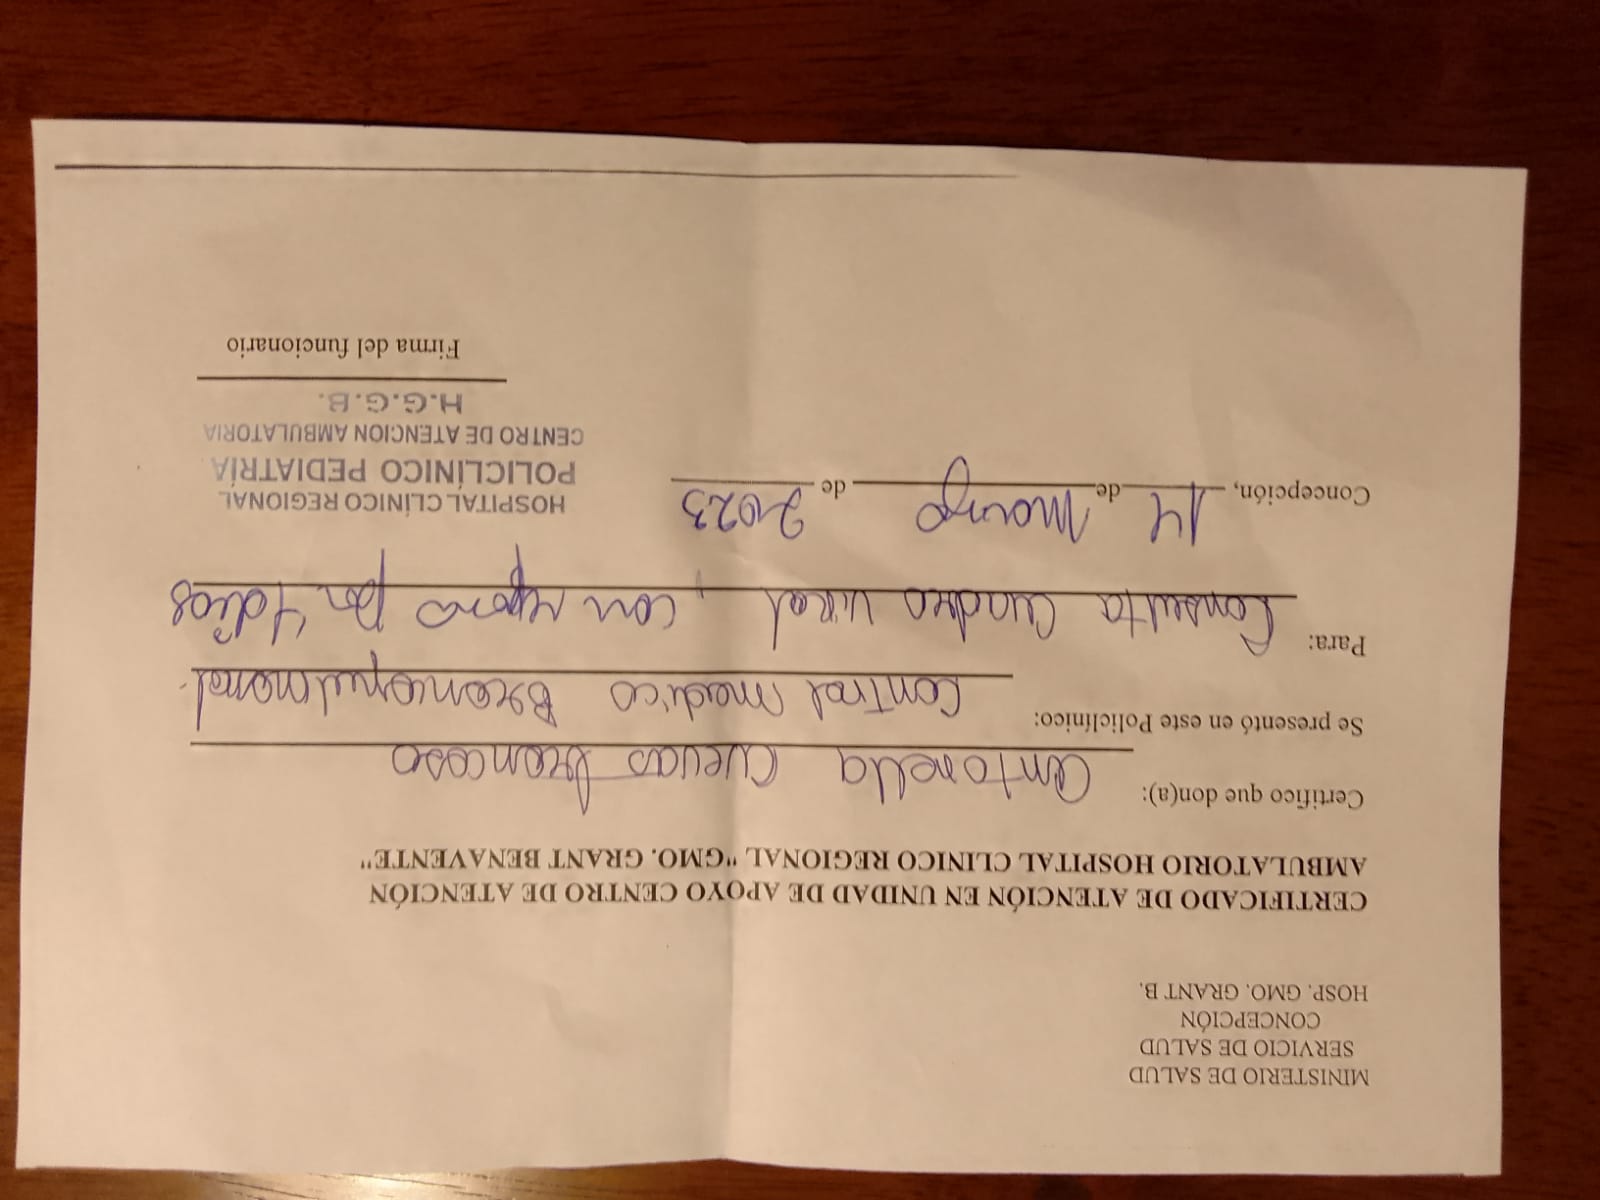 MINISTERIO DE SALUD
SERVICIO DE SALUD
CONCEPCIÓN
HOSP. GMO. GRANT B.
CERTIFICADO DE ATENCIÓN EN UNIDAD DE APOYO CENTRO DE ATENCIÓN
AMBULATORIO HOSPITAL CLINICO REGIONAL "GMO. GRANT BENAVENTE"
Certifico que don(a): Antonella Cuevas Troncoso
Se presentó en este Policlínico: Control medico Broncopulmonar.
Para: Consulta Cuadro viral, con reposo por 4 dias
Concepción, 14 de Marzo de 2023
HOSPITAL CLÍNICO REGIONAL
POLICLÍNICO PEDIATRÍA
CENTRO DE ATENCION AMBULATORIA
H.G.G.B.
Firma del funcionario